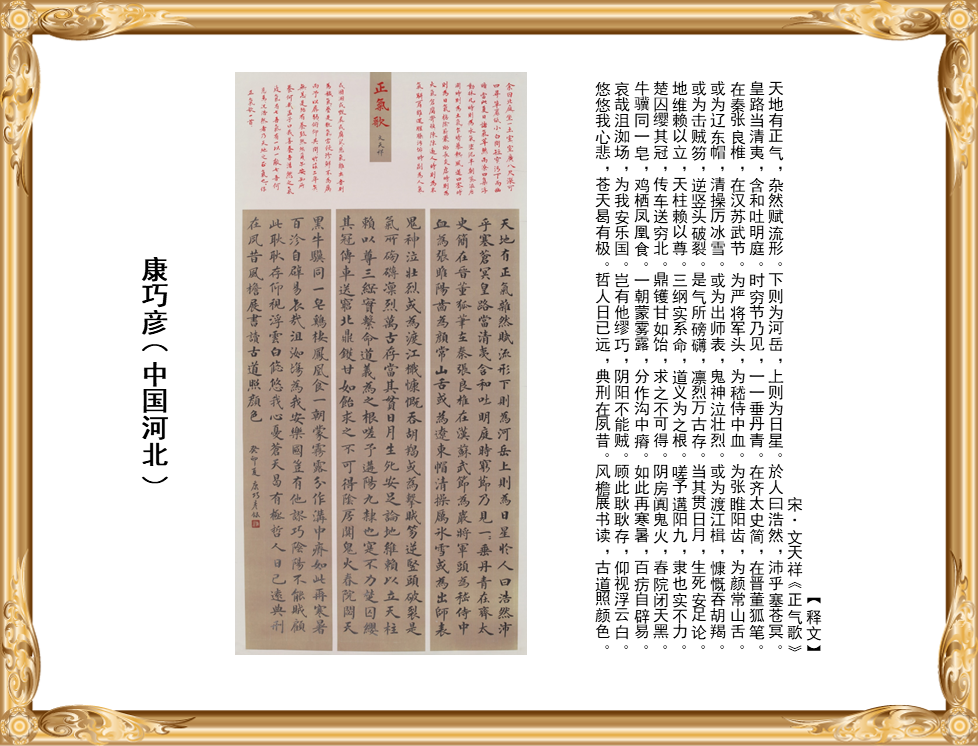 【释文】
宋·文天祥《正气歌》
天地有正气，杂然赋流形。下则为河岳，上则为日星。於人曰浩然，沛乎塞苍冥。
皇路当清夷，含和吐明庭。时穷节乃见，一一垂丹青。在齐太史简，在晋董狐笔。
在秦张良椎，在汉苏武节。为严将军头，为嵇侍中血。为张睢阳齿，为颜常山舌。
或为辽东帽，清操厉冰雪。或为出师表，鬼神泣壮烈。或为渡江楫，慷慨吞胡羯。
或为击贼笏，逆竖头破裂。是气所磅礴，凛烈万古存。当其贯日月，生死安足论。
地维赖以立，天柱赖以尊。三纲实系命，道义为之根。嗟予遘阳九，隶也实不力。
楚囚缨其冠，传车送穷北。鼎镬甘如饴，求之不可得。阴房阗鬼火，春院闭天黑。
牛骥同一皂，鸡栖凤凰食。一朝蒙雾露，分作沟中瘠。如此再寒暑，百疠自辟易。
哀哉沮洳场，为我安乐国。岂有他缪巧，阴阳不能贼。顾此耿耿存，仰视浮云白。
悠悠我心悲，苍天曷有极。哲人日已远，典刑在夙昔。风檐展书读，古道照颜色。
正氣歌
文天祥
天地有正氣雜然賦流形下則為河岳上則為日星於人曰浩然沛
乎塞蒼冥皇路當清夷含和吐明庭時窮節乃見一一垂丹青在齊太
史簡在晉董狐筆在秦張良椎在漢蘇武節為嚴將軍頭為嵇侍中
血為張睢陽齒為顏常山舌或為遼東帽清操厲冰雪或為出師表
鬼神泣壯烈或為渡江楫慷慨吞胡羯或為擊賊笏逆豎頭破裂是
氣所磅礴凜烈萬古存當其貫日月生死安足論地維賴以立天柱
賴以尊三綱實繫命道義為之根嗟予遘陽九隸也實不力楚囚纓
其冠傳車送窮北鼎鑊甘如飴求之不可得陰房闃鬼火春院閟天
黑牛驥同一皂鷄棲鳳凰食一朝蒙霧露分作溝中瘠如此再寒暑
百沴自辟易哀哉沮洳場為我安樂國豈有他謬巧陰陽不能賊顧
此耿耿存仰視浮雲白悠悠我心憂蒼天曷有極哲人日已遠典刑
在夙昔風檐展書讀古道照顏色
癸卯夏康巧彥
康巧彦（中国河北）